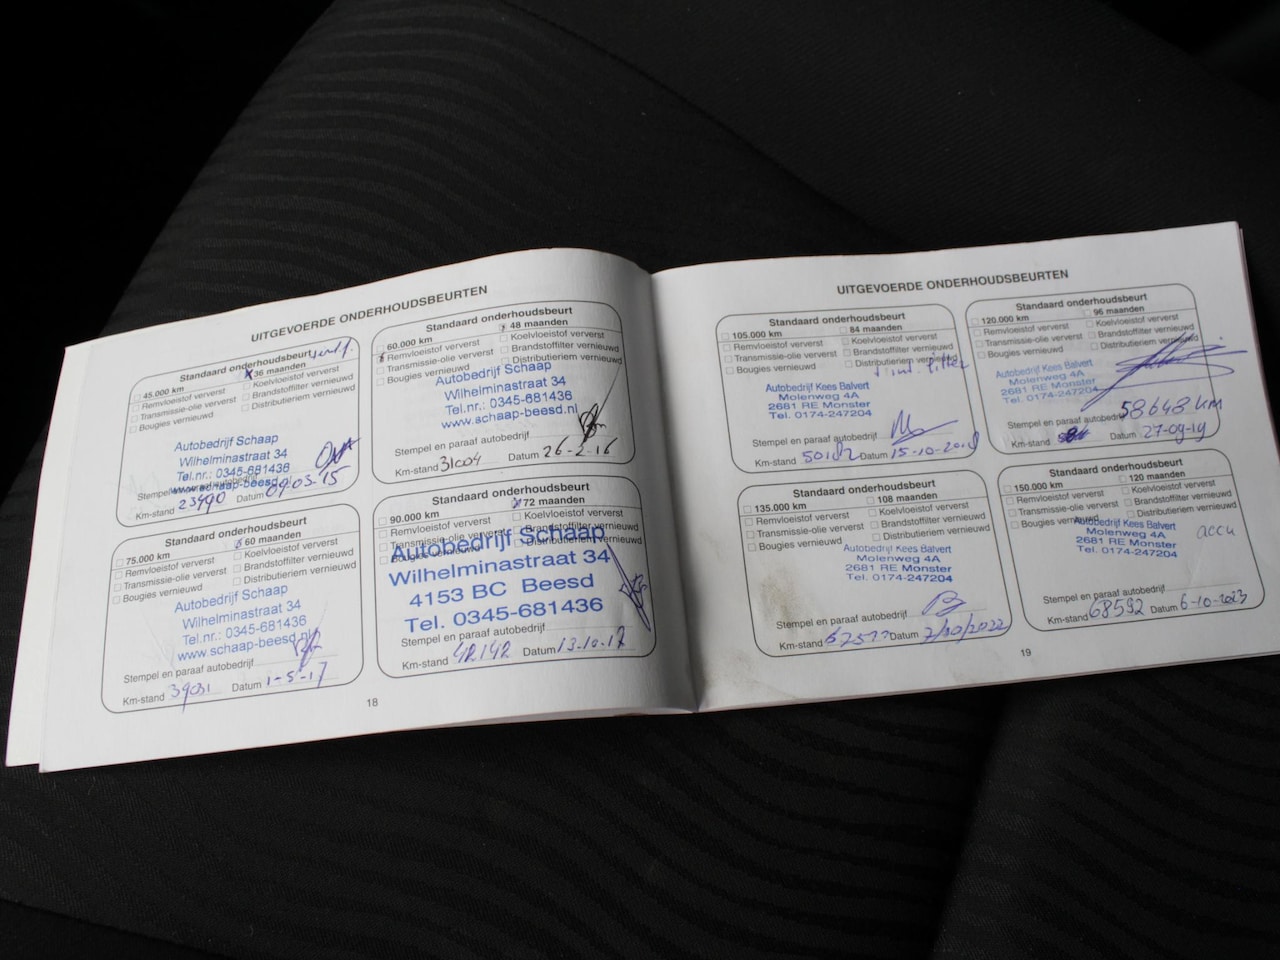 UITGEVOERDE ONDERHOUDSBEURTEN
Standaard onderhoudsbeurt
45.000 km 36 maanden
Remvloeistof ververst Koelvloeistof ververst
Transmissie-olie ververst Brandstoffilter vernieuwd
Bougies vernieuwd Distributieriem vernieuwd
Autobedrijf Schaap
Wilhelminastraat 34
Tel.nr.: 0345-681436
www.schaap-beesd.nl
Km-stand 23990 Datum 09.03-15
Standaard onderhoudsbeurt
60.000 km 48 maanden
Remvloeistof ververst Koelvloeistof ververst
Transmissie-olie ververst Brandstoffilter vernieuwd
Bougies vernieuwd Distributieriem vernieuwd
Autobedrijf Schaap
Wilhelminastraat 34
Tel.nr.: 0345-681436
www.schaap-beesd.nl
Stempel en paraaf autobedrijf
Km-stand 31004 Datum 26-2-16
Standaard onderhoudsbeurt
75.000 km 60 maanden
Remvloeistof ververst Koelvloeistof ververst
Transmissie-olie ververst Brandstoffilter vernieuwd
Bougies vernieuwd Distributieriem vernieuwd
Autobedrijf Schaap
Wilhelminastraat 34
Tel.nr.: 0345-681436
www.schaap-beesd.nl
Stempel en paraaf autobedrijf
Km-stand 39031 Datum 1-5-17
Standaard onderhoudsbeurt
90.000 km 72 maanden
Remvloeistof ververst Koelvloeistof ververst
Transmissie-olie ververst Brandstoffilter vernieuwd
Bougies vernieuwd Distributieriem vernieuwd
Autobedrijf Schaap
Wilhelminastraat 34
4153 BC Beesd
Tel. 0345-681436
Stempel en paraaf autobedrijf
Km-stand 42142 Datum 13.10.17
18
UITGEVOERDE ONDERHOUDSBEURTEN
Standaard onderhoudsbeurt
105.000 km 84 maanden
Remvloeistof ververst Koelvloeistof ververst
Transmissie-olie ververst Brandstoffilter vernieuwd
Bougies vernieuwd Distributieriem vernieuwd
+ int. filter
Autobedrijf Kees Balvert
Molenweg 4A
2681 RE Monster
Tel. 0174-247204
Stempel en paraaf autobedrijf
Km-stand 50182 Datum 15-10-2018
Standaard onderhoudsbeurt
120.000 km 96 maanden
Remvloeistof ververst Koelvloeistof ververst
Transmissie-olie ververst Brandstoffilter vernieuwd
Bougies vernieuwd Distributieriem vernieuwd
Autobedrijf Kees Balvert
Molenweg 4A
2681 RE Monster
Tel. 0174-247204
Stempel en paraaf autobedrijf 58648 km
Km-stand Datum 27-09-19
Standaard onderhoudsbeurt
135.000 km 108 maanden
Remvloeistof ververst Koelvloeistof ververst
Transmissie-olie ververst Brandstoffilter vernieuwd
Bougies vernieuwd Distributieriem vernieuwd
Autobedrijf Kees Balvert
Molenweg 4A
2681 RE Monster
Tel. 0174-247204
Stempel en paraaf autobedrijf
Km-stand Datum 7/10/2022
Standaard onderhoudsbeurt
150.000 km 120 maanden
Remvloeistof ververst Koelvloeistof ververst
Transmissie-olie ververst Brandstoffilter vernieuwd
Bougies vernieuwd Distributieriem vernieuwd
Autobedrijf Kees Balvert
Molenweg 4A
2681 RE Monster
Tel. 0174-247204
accu
Stempel en paraaf autobedrijf
Km-stand 68592 Datum 6-10-2023
19